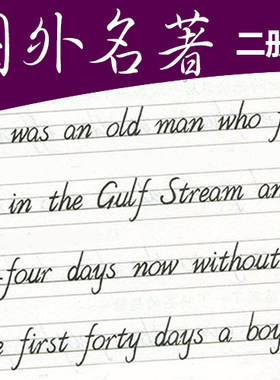 外名著 二册
was an old man who
in the Gulf Stream an
-four days now without
first forty days a boy